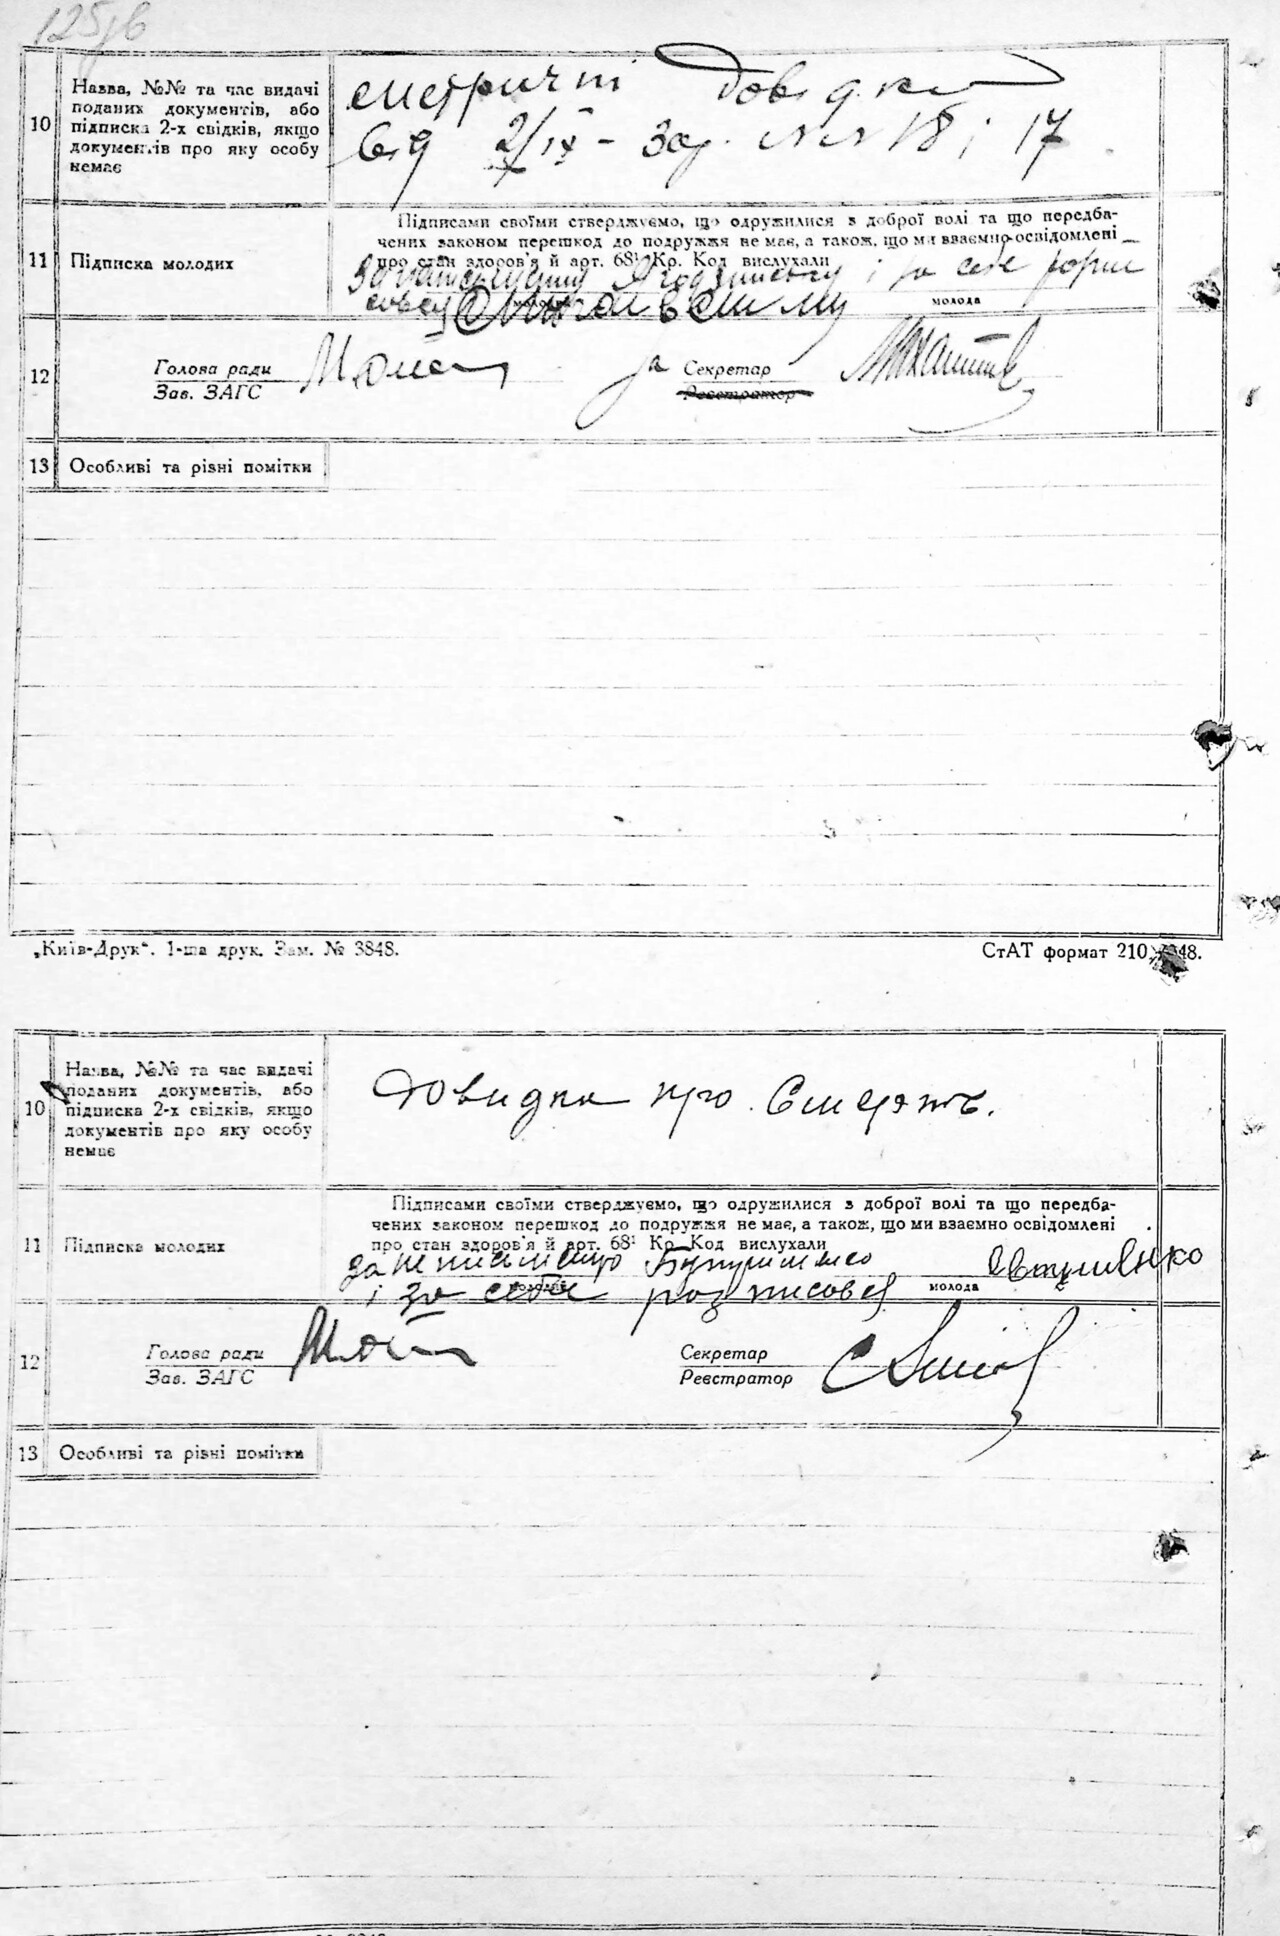 125зв
10
Назва, №№ та час видачі
поданих документів, або
підписка 2-х свідків, якщо
документів про яку особу
немає
метричні довідки
від 2/IX - 30р. №№ 18 і 17
11
Підписка молодих
Підписами своїми стверджуємо, що одружилися з доброї волі та що передба-
чених законом перешкод до подружжя не має, а також, що ми взаємно-освідомлені
про стан здоров'я й арт. 68¹ Кр. Код вислухали
і за себе
молода
12
Голова ради
Зав. ЗАГС
за Секретар
Реєстратор
13
Особливі та різні помітки
„Київ-Друк“. 1-ша друк. Зам. № 3848.
СтАТ формат 210
48.
10
Назва, №№ та час видачі
поданих документів, або
підписка 2-х свідків, якщо
документів про яку особу
немає
Довидка про Смерть.
11
Підписка молодих
Підписами своїми стверджуємо, що одружилися з доброї волі та що передба-
чених законом перешкод до подружжя не має, а також, що ми взаємно освідомлені
про стан здоров'я й арт. 68¹ Кр. Код вислухали
за
і за себе розписовся
молода
12
Голова ради
Зав. ЗАГС
Секретар
Реєстратор
13
Особливі та різні помітки